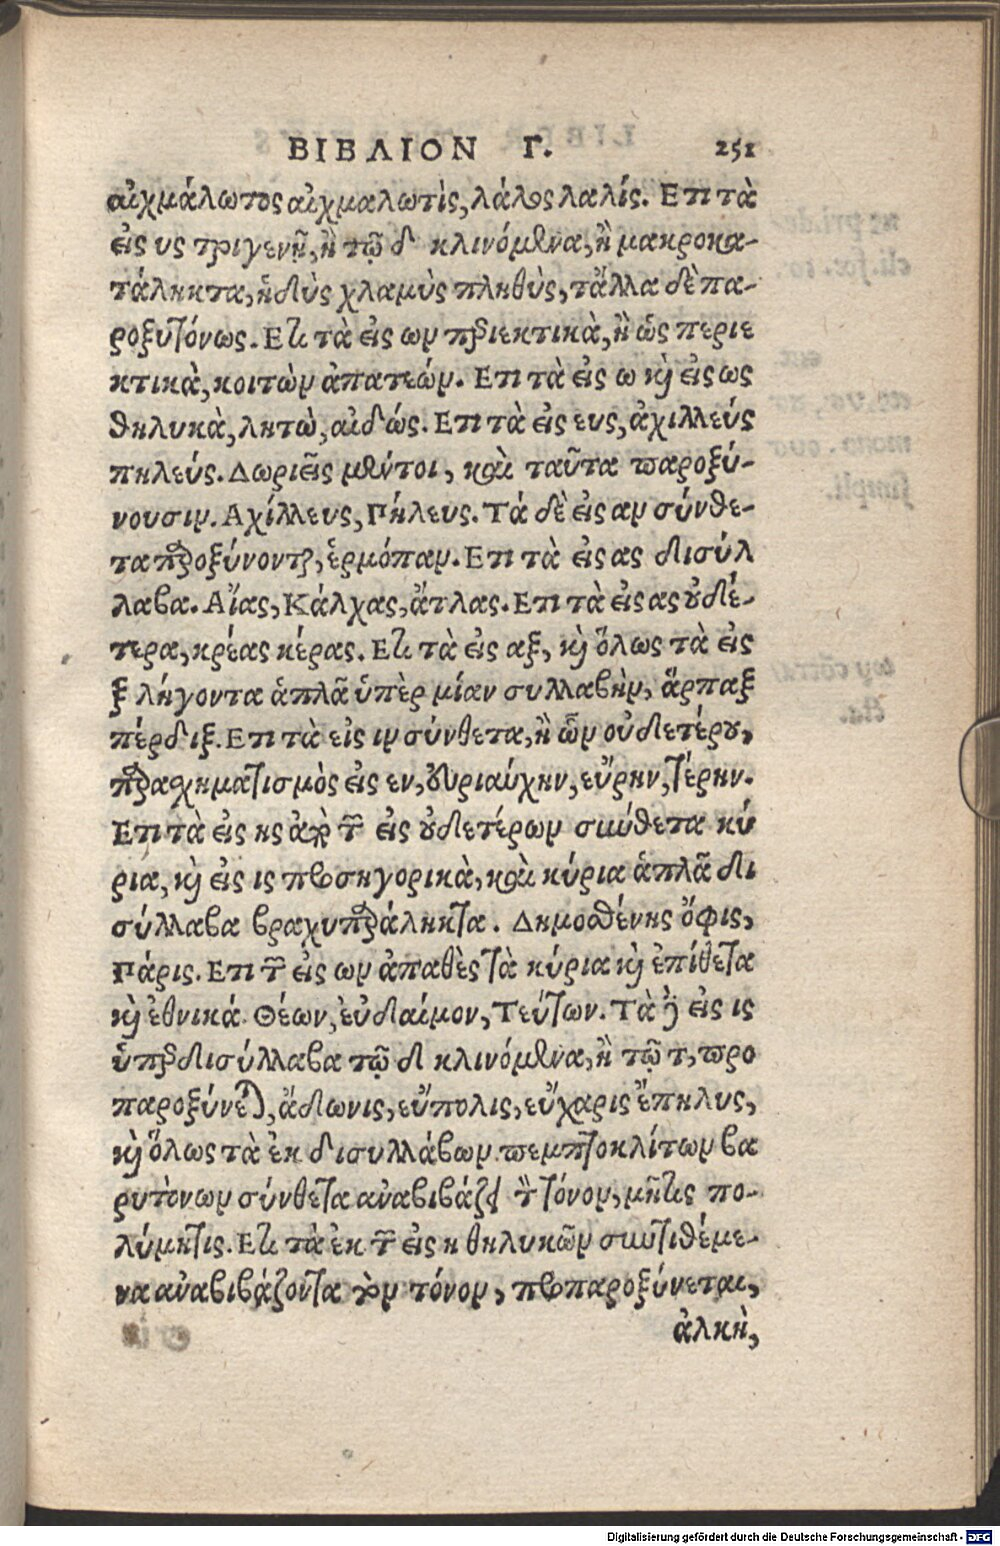 ΒΙΒΛΙΟΝ Γ. 251
αἰχμάλωτος αἰχμαλωτὶς, λάλος λαλίς. Ετι τὰ
εἰς υς τριγενῆ, ἢ τῷ δ κλινόμενα, ἢ μακροκα-
τάληκτα, ἡδὺς χλαμὺς πληθὺς, τἄλλα δὲ πα-
ροξυτόνως. Ετι τὰ εἰς ων περιεκτικὰ, ἢ ὡς περιε
κτικὰ, κοιτὼν ἀπατεών. Ετι τὰ εἰς ω καὶ εἰς ως
θηλυκὰ, λητὼ, αἰδώς. Ετι τὰ εἰς ευς, ἀχιλλεύς
πηλεύς. Δωριεῖς μέντοι, καὶ ταῦτα παροξύ-
νουσιν. Αχίλλευς, Πήλευς. Τά δὲ εἰς αν σύνθε-
τα παροξύνονται, ἑρμόπαν. Ετι τὰ εἰς ας δισύλ
λαβα. Αἴας, Κάλχας, ἄτλας. Ετι τὰ εἰς ας οὐδέ-
τερα, κρέας κέρας. Ετι τὰ εἰς αξ, καὶ ὅλως τὰ εἰς
ξ λήγοντα ἁπλᾶ ὑπὲρ μίαν συλλαβὴν, ἅρπαξ
πέρδιξ. Ετι τὰ εἰς ιν σύνθετα, ἢ ὧν οὐδετέρου,
παρασχηματισμὸς εἰς εν, οὑριαύχην, εὔρην, τέρην.
Ετι τὰ εἰς ης ἀπὸ τῶν εἰς οὐδετέρων σύνθετα κύ
ρια, καὶ εἰς ις προσηγορικὰ, καὶ κύρια ἁπλᾶ δι
σύλλαβα βραχυπαράληκτα. Δημοσθένης ὄφις,
Πάρις. Ετι τῶν εἰς ων ἀπαθὲς τὰ κύρια καὶ ἐπίθετα
καὶ ἐθνικά. Θέων, εὐδαίμον, Τεύτων. Τὰ δὲ εἰς ις
ὑπερδισύλλαβα τῷ δ κλινόμενα, ἢ τῷ τ, προ
παροξύνεται, ἄδωνις, εὔπολις, εὔχαρις ἔπηλυς,
καὶ ὅλως τὰ ἐκ δισυλλάβων πεμπτοκλίτων βα
ρυτόνων σύνθετα ἀναβιβάζει τὸν τόνον, μῆτις πο-
λύμητις. Ετι τὰ ἐκ τῶν εἰς η θηλυκῶν συντιθέμε-
να ἀναβιβάζοντα τὸν τόνον, προπαροξύνεται,
ἀλκὴ,
Digitalisierung gefördert durch die Deutsche Forschungsgemeinschaft - DFG